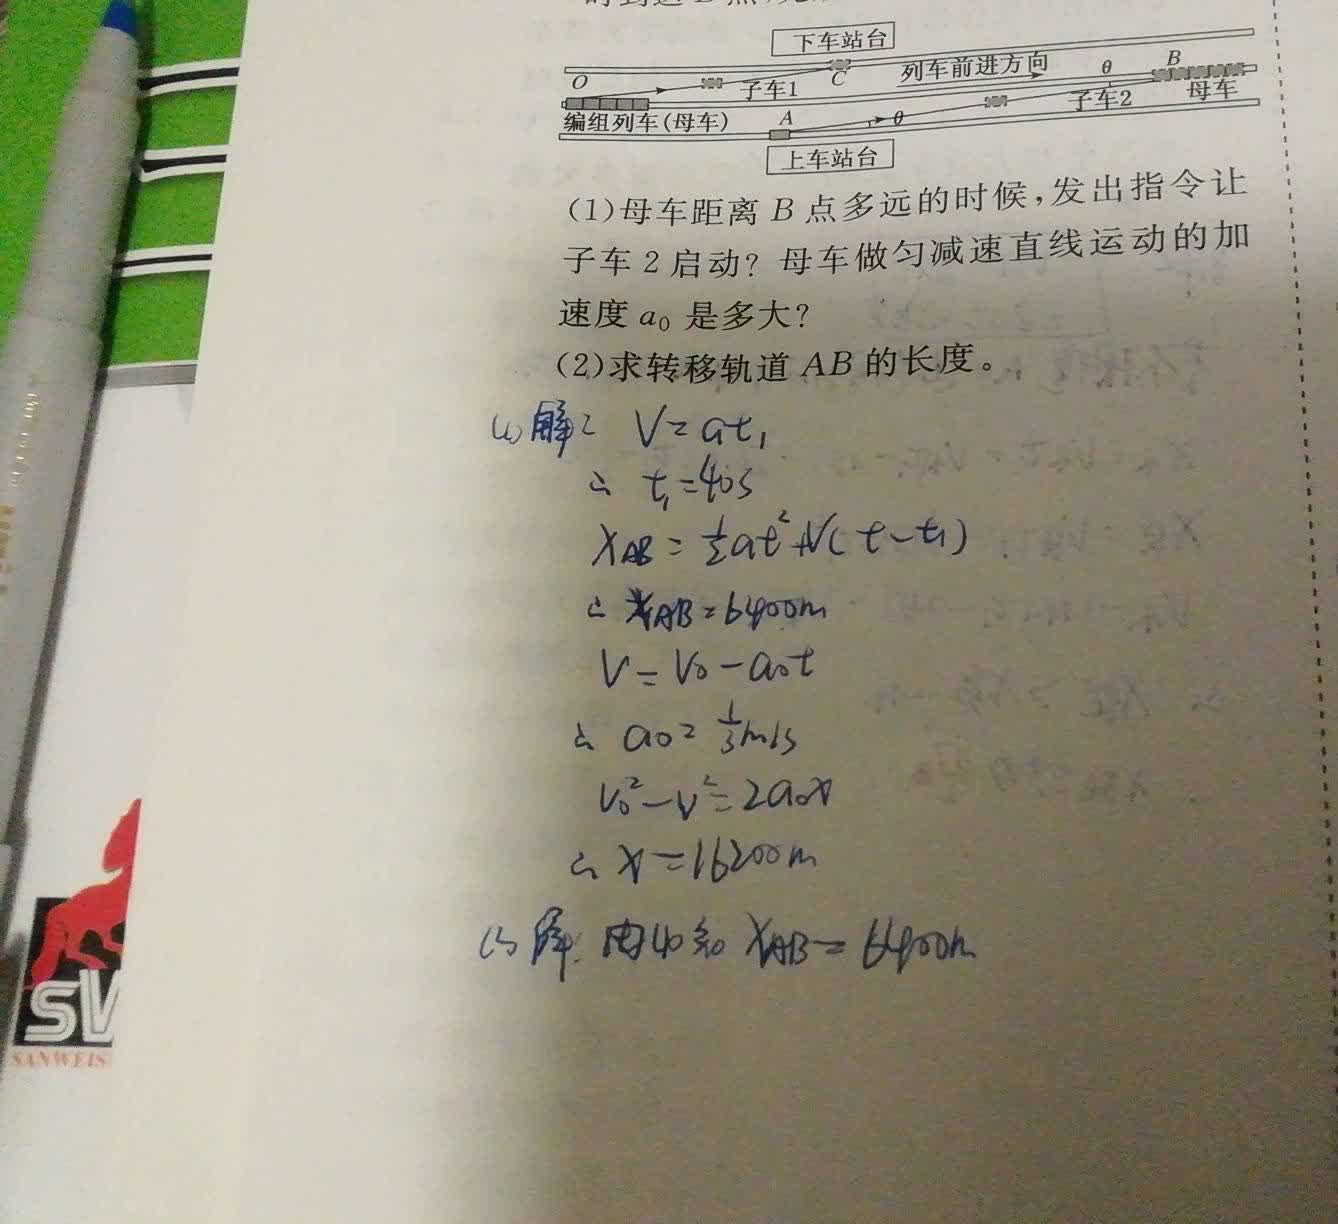 下车站台
O
子车1
C
列车前进方向
θ
B
编组列车(母车)
A
θ
子车2
母车
上车站台
(1)母车距离 B 点多远的时候,发出指令让
子车 2 启动? 母车做匀减速直线运动的加
速度 a₀ 是多大?
(2)求转移轨道 AB 的长度。
(1)解: V=at₁
∴ t₁=40s
X_AB = ½at²+V(t-t₁)
∴ X_AB=6400m
V=V₀-a₀t
∴ a₀= ⅓m/s
V₀²-V²=2a₀x
∴ x=16200m
(2)解: 由(1)知 X_AB=6400m
SANWEIS